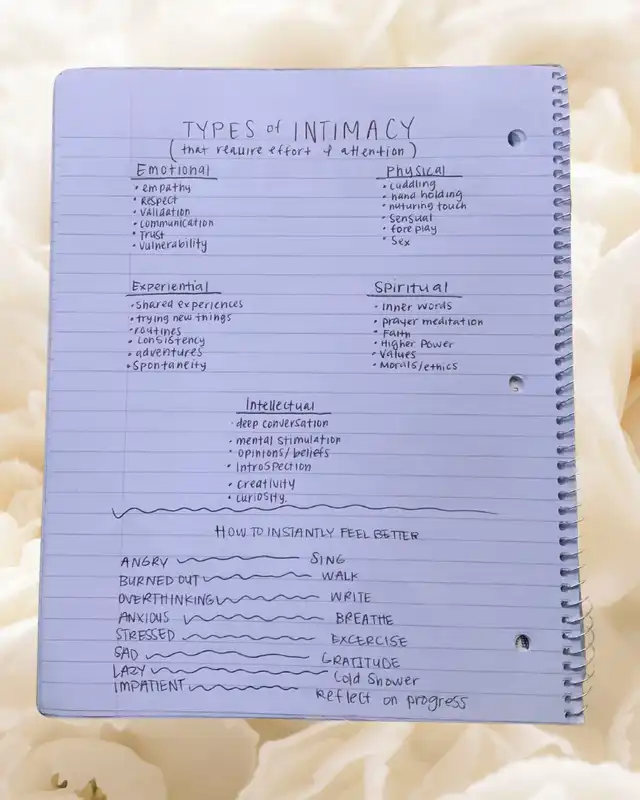 TYPES of INTIMACY
(that require effort & attention)
Emotional
• empathy
• Respect
• validation
• communication
• Trust
• vulnerability
Physical
• cuddling
• hand holding
• naturing touch
• Sensual
• foreplay
• Sex
Experiential
• Shared experiences
• trying new things
• routines
• consistency
• adventures
• Spontaneity
Spiritual
• inner words
• prayer meditation
• Faith
• Higher Power
• Values
• Morals/ethics
Intellectual
• deep conversation
• mental stimulation
• opinions/beliefs
• introspection
• creativity
• curiosity
HOW TO INSTANTLY FEEL BETTER
ANGRY SING
BURNED OUT WALK
OVERTHINKING WRITE
ANXIOUS BREATHE
STRESSED EXCERCISE
SAD GRATITUDE
LAZY Cold Shower
IMPATIENT Reflect on progress